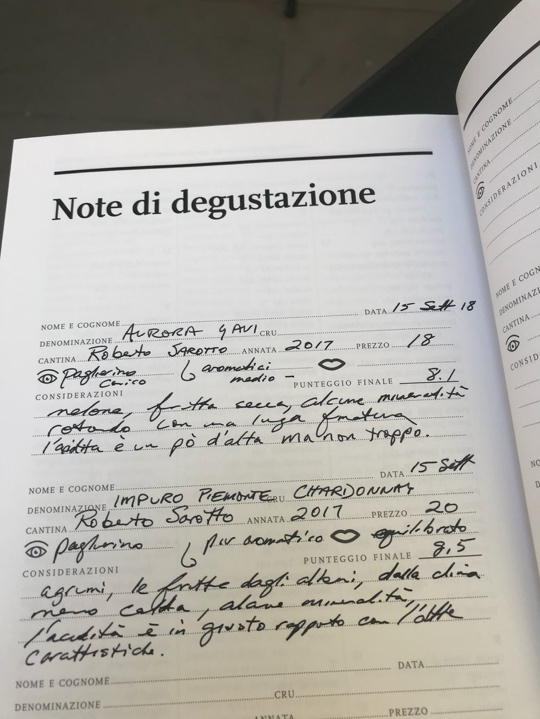 Note di degustazione
NOME E COGNOME DATA 15 Sett 18
DENOMINAZIONE AURORA GAVI CRU
CANTINA Roberto SAROTTO ANNATA 2017 PREZZO 18
paglierino aromatici
carico medio -
PUNTEGGIO FINALE 8.1
CONSIDERAZIONI
melone, frutta secca, alcune mineralità
rotondo con una luga
l'acidità è un pò d'alta ma non troppo.
NOME E COGNOME DATA 15 Sett
DENOMINAZIONE IMPURO PIEMONTE CRU CHARDONNAY
CANTINA Roberto Sarotto ANNATA 2017 PREZZO 20
paglierino piu aromatico equilibrato
PUNTEGGIO FINALE 8,5
CONSIDERAZIONI
agrumi, le frutte dagli alberi, dalla clima
meno calda, alcune mineralità,
l'acidità è in giusto rapporto con l'altre
NOME E COGNOME DATA
DENOMINAZIONE CRU
ANNATA PREZZO
NOME E COGNOME
DENOMINAZIONE
CANTINA
CONSIDERAZIONI
NOME E COGNO
CANTINA